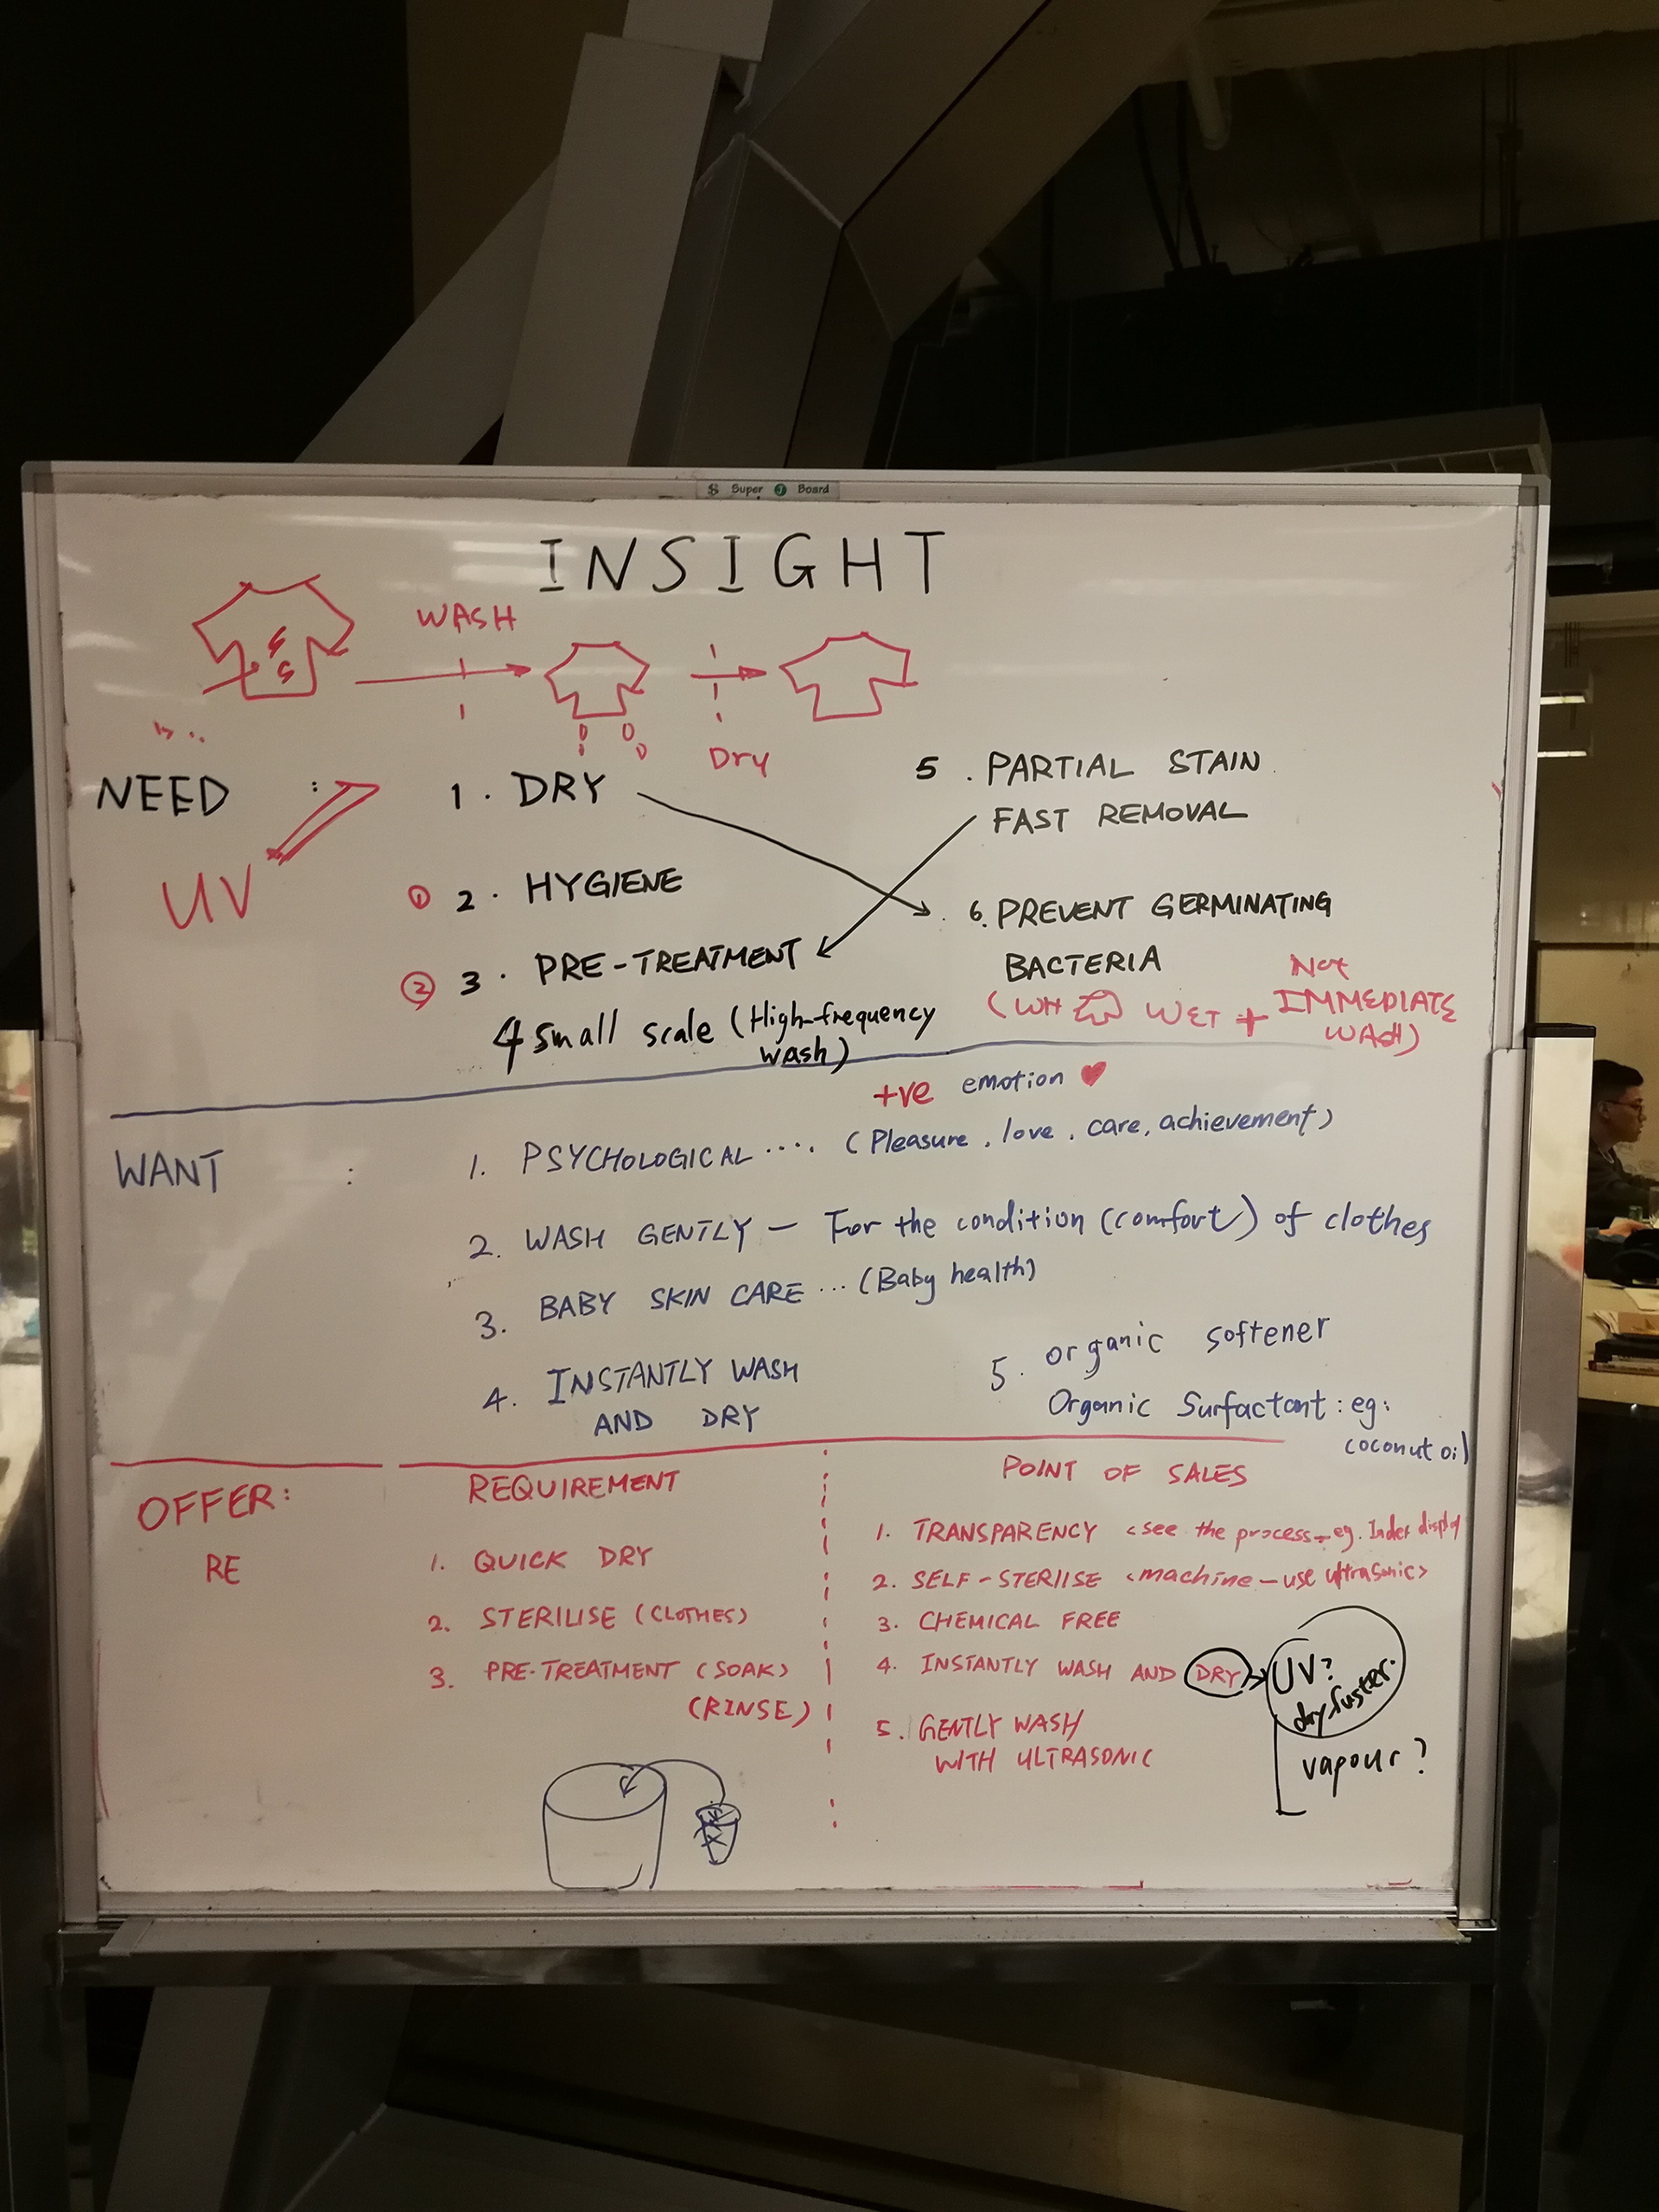 Super Board
INSIGHT
WASH
Dry
NEED :
UV
1. DRY
① 2. HYGIENE
② 3. PRE-TREATMENT
4 Small scale (High-frequency
wash)
5. PARTIAL STAIN
FAST REMOVAL
6. PREVENT GERMINATING
BACTERIA
(WH WET + Not
IMMEDIATE
WASH)
+ve emotion ♥
WANT :
1. PSYCHOLOGICAL .... (Pleasure, love, care, achievement)
2. WASH GENTLY — For the condition (comfort) of clothes
3. BABY SKIN CARE ... (Baby health)
4. INSTANTLY WASH
AND DRY
5. organic softener
Organic Surfactant: eg:
coconut oil
OFFER:
RE
REQUIREMENT
1. QUICK DRY
2. STERILISE (CLOTHES)
3. PRE-TREATMENT (SOAK)
(RINSE)
POINT OF SALES
1. TRANSPARENCY <see the process - eg. Index display
2. SELF-STERIISE <machine - use ultrasonic>
3. CHEMICAL FREE
4. INSTANTLY WASH AND DRY
UV?
dry faster.
vapour?
5. GENTLY WASH
WITH ULTRASONIC